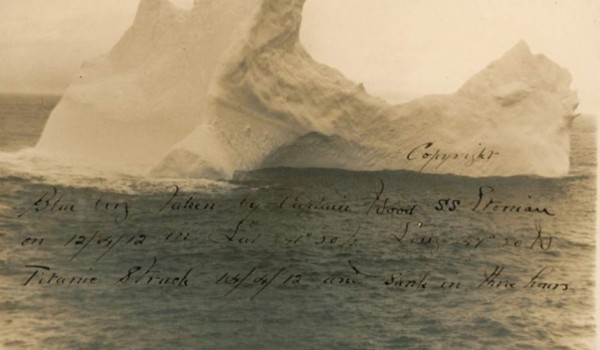 Copyright
Blue berg Taken by Captain Wood SS Etonian
on 12/4/12 in Lat Long 50 N
Titanic Struck 14/4/12 and sank in three hours.